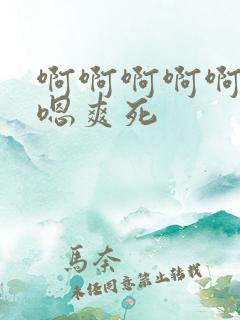 啊啊啊啊啊
嗯爽死
馬奈
未经同意禁止转载